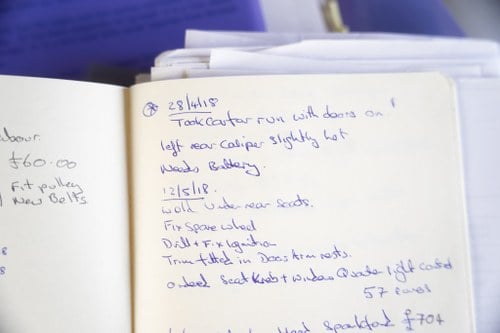 abour.
£60.00
Fit pulley
New Belts
28/4/18
Took car for run with doors on!
left rear Caliper slightly hot
Needs Battery.
12/5/18.
Weld under rear Seats.
Fix Spare wheel
Drill + Fix Ignition
Trim fitted in Doors Arm rests.
ordered Seat Knob + window Quarter light
57 euros
Hand £70